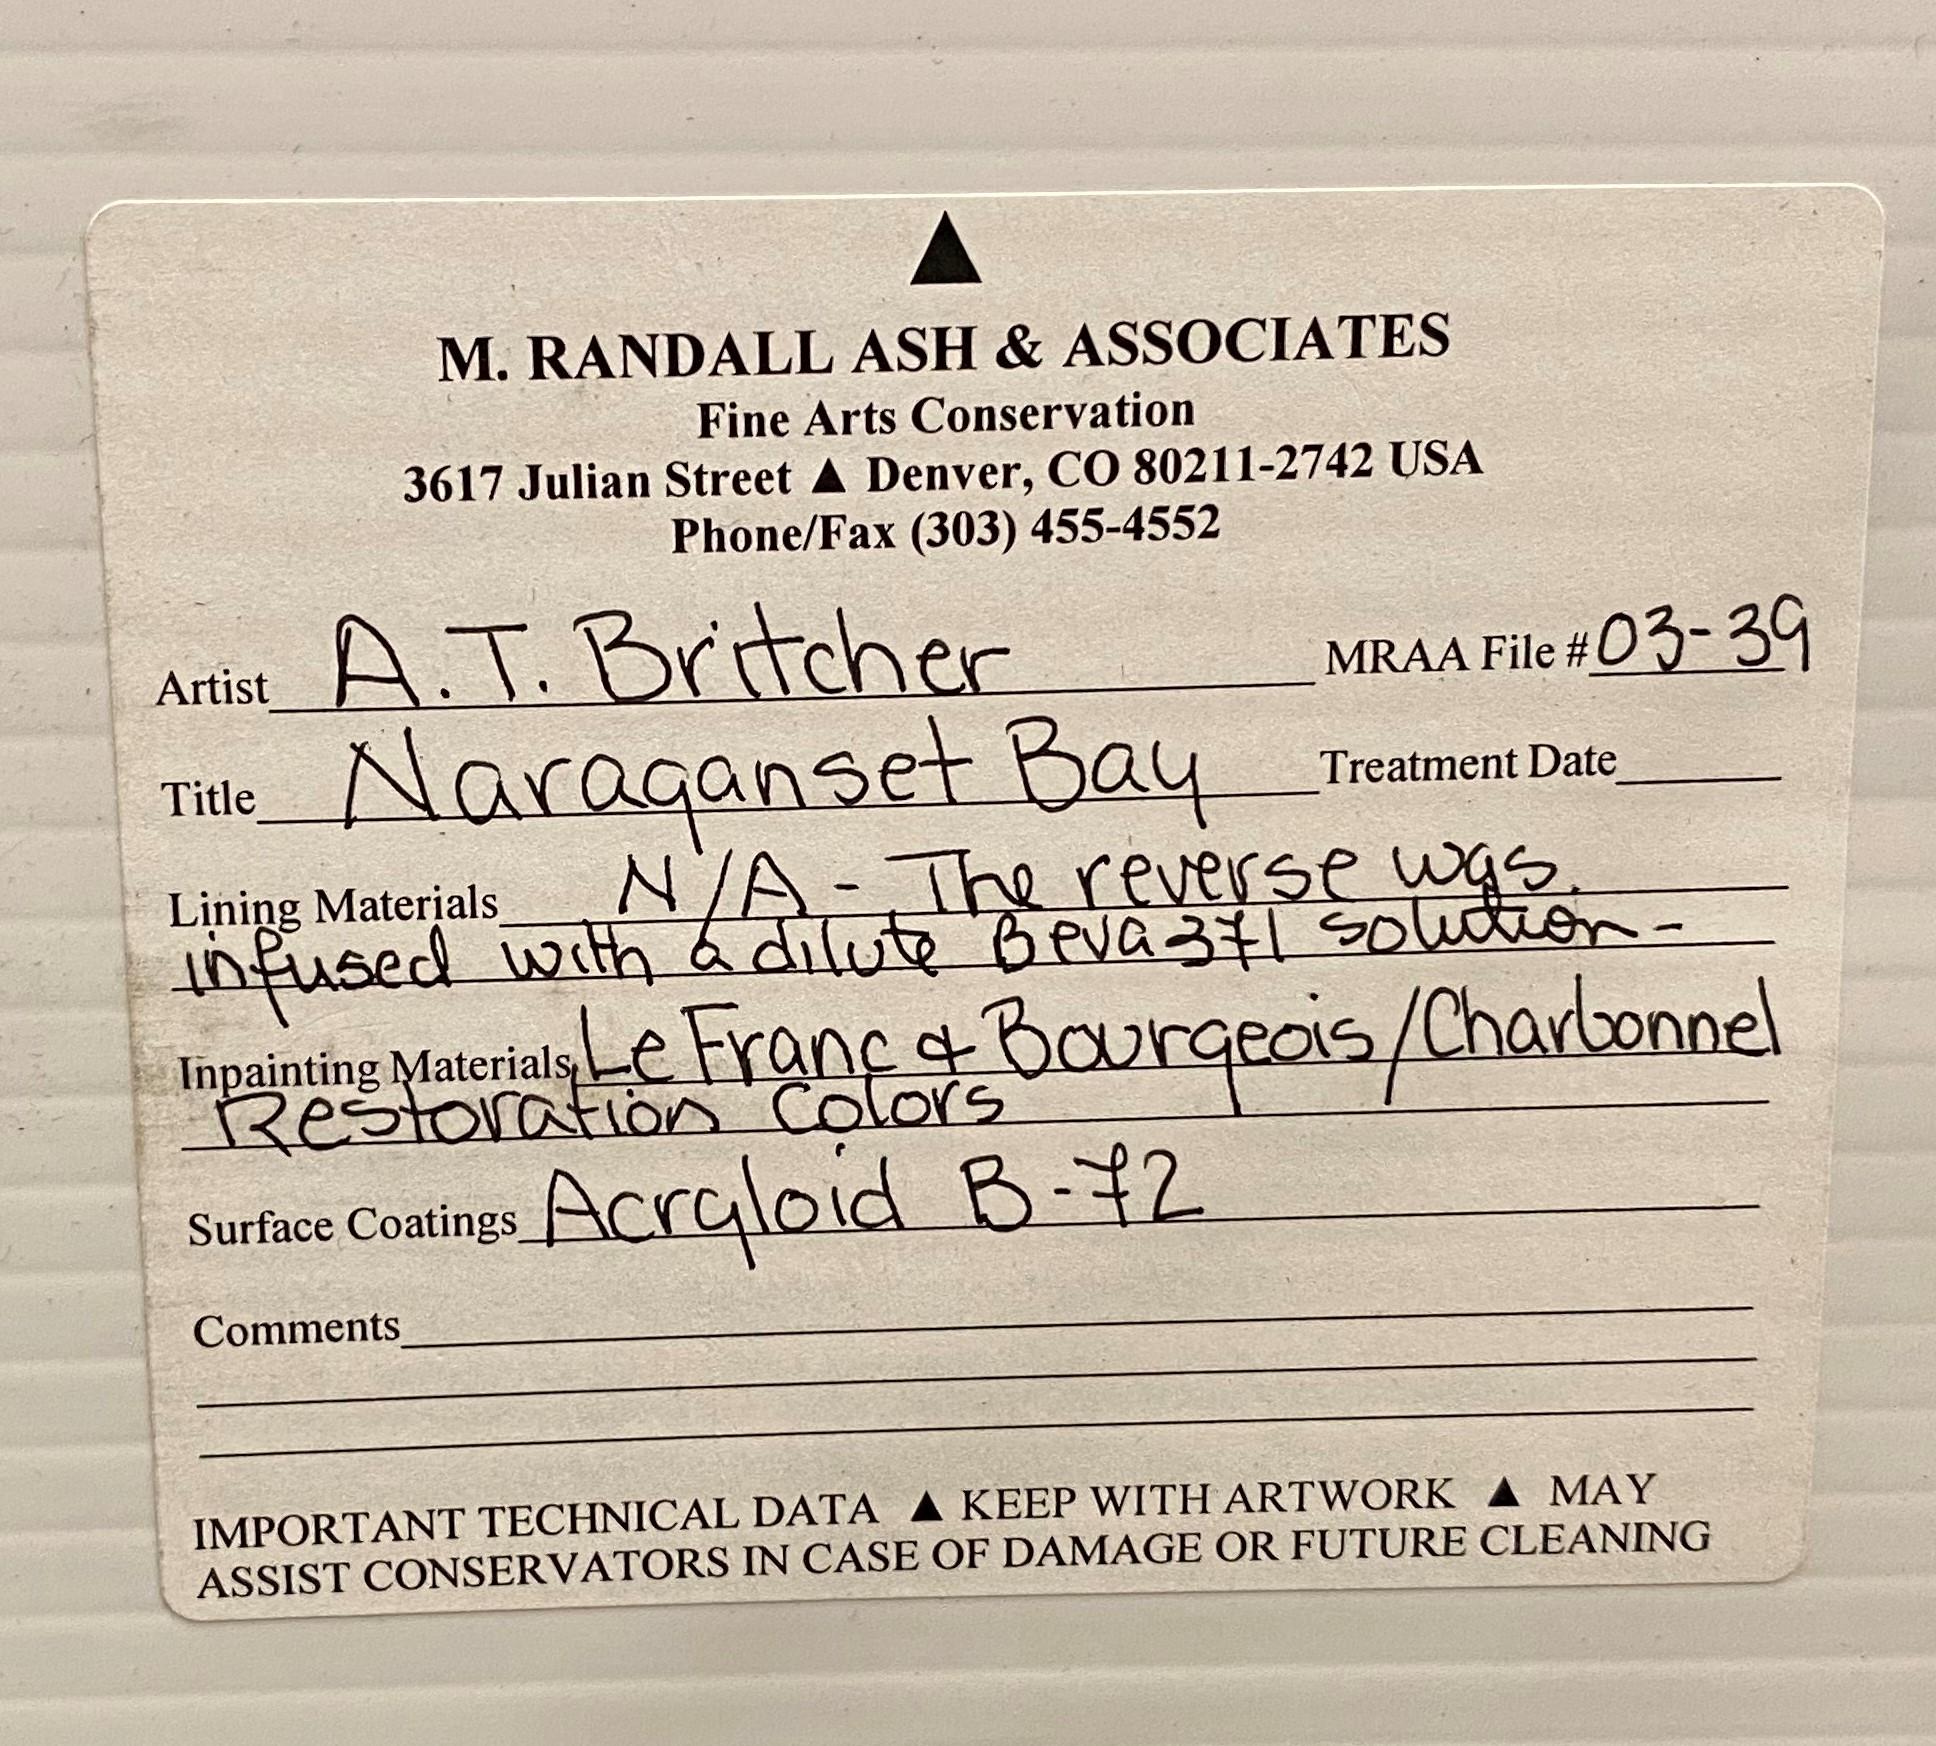 ▲
M. RANDALL ASH & ASSOCIATES
Fine Arts Conservation
3617 Julian Street ▲ Denver, CO 80211-2742 USA
Phone/Fax (303) 455-4552
Artist A.T. Britcher MRAA File # 03-39
Title Naraganset Bay Treatment Date
Lining Materials N/A - The reverse was
infused with a dilute Beva 371 solution -
Inpainting Materials Le Franc & Bourgeois/Charbonnel
Restoration Colors
Surface Coatings Acryloid B-72
Comments
IMPORTANT TECHNICAL DATA ▲ KEEP WITH ARTWORK ▲ MAY
ASSIST CONSERVATORS IN CASE OF DAMAGE OR FUTURE CLEANING